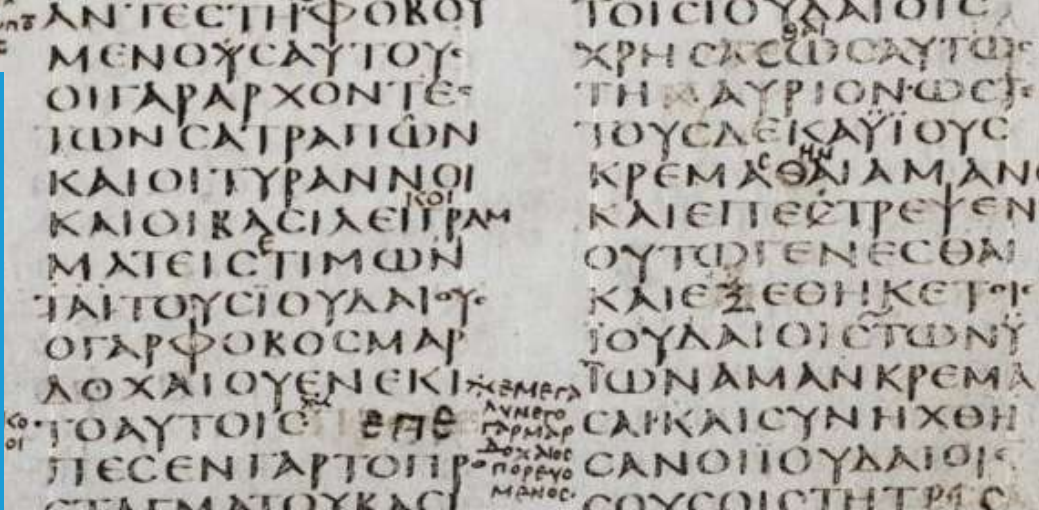 ΑΝΤΕϹΤΗΦΟΒΟΥ
ΜΕΝΟΥϹΑΥΤΟΥϹ
ΟΙΓΑΡΑΡΧΟΝΤΕϹ
ΤΩΝϹΑΤΡΑΠΩΝ
ΚΑΙΟΙΤΥΡΑΝΝΟΙ
ΚΟΙ
ΚΑΙΟΙΒΑϹΙΛΕΙΓΡΑΜ
Ε
ΜΑΤΕΙϹΤΙΜΩΝ
ΤΑΙΤΟΥϹΪΟΥΔΑΙΟΥϹ
ΟΓΑΡΦΟΒΟϹΜΑΡ
ΔΟΧΑΙΟΥΕΝΕΚΙ
ΤΟΑΥΤΟΙϹ ΕΠΕ
ΠΕϹΕΝΓΑΡΤΟΠΡΟ
ϹΤΑΓΜΑΤΟΥΒΑϹΙ
ΕΜΕΓΑ
ΛΥΝΕΤΟ
ΓΑΡΜΑΡ
ΔΟΧΑΙΟϹ
ΠΟΡΕΥΟ
ΜΕΝΟϹ
ΤΟΙϹΙΟΥΔΑΙΟΙϹ
ΘΑΙ
ΧΡΗϹΑϹΩϹΑΥΤΩϹ
ΤΗ ΑΥΡΙΟΝΩϹΤΕ
ΤΟΥϹΔΕΚΑΫΪΟΥϹ
Ϲ ΗΝ
ΚΡΕΜΑΘΑΙΑΜΑΝ
ΚΑΙΕΠΕϹΤΡΕΨΕΝ
ΟΥΤΩΓΕΝΕϹΘΑΙ
ΚΑΙΕΞΕΘΗΚΕΤΟΙϹ
ΙΟΥΔΑΙΟΙϹΤΩΝΫ
ΪΩΝΑΜΑΝΚΡΕΜΑ
ϹΑΙΚΑΙϹΥΝΗΧΘΗ
ϹΑΝΟΙΙΟΥΔΑΙΟΙΕ